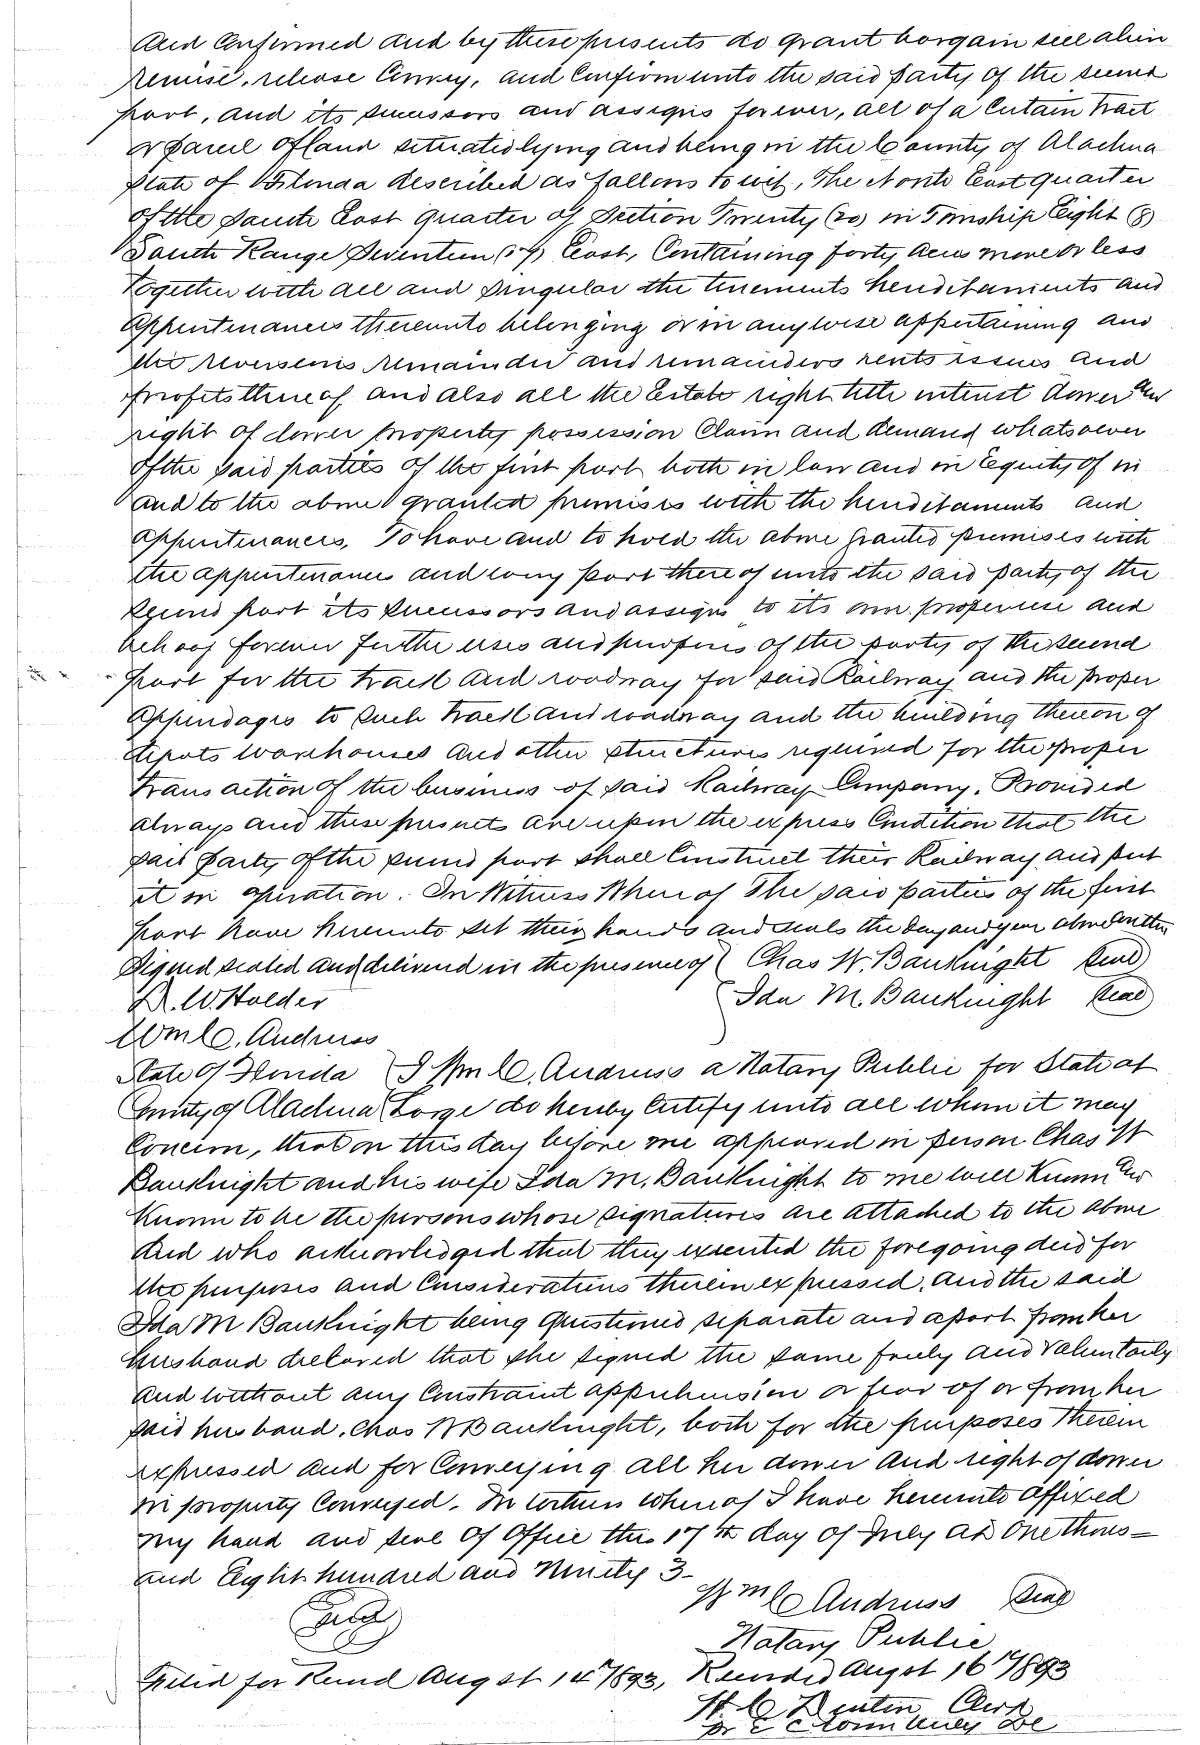 and Confirmed and by these presents do grant bargain sell alien
remise, release Convey, and Confirm unto the said party of the second
part, and its successors and assigns forever, all of a Certain Tract
or parcel of land situated lying and being in the County of Alachua
State of Florida described as follows to wit, The North East quarter
of the South East quarter of Section Twenty (20) in Township Eight (8)
South Range Seventeen (17) East, Containing forty acres more or less
Together with all and singular the tenements hereditaments and
appurtenances thereunto belonging or in anywise appertaining and
the reversions remainder and remainders rents issues and
profits thereof and also all the Estate right title interest dower and
right of dower property possession Claim and demand whatsoever
of the said parties of the first part both in law and in Equity of in
and to the above granted premises with the hereditaments and
appurtenances, To have and to hold the above granted premises with
the appurtenances and every part thereof unto the said party of the
second part its successors and assigns to its own proper use and
behoof forever for the uses and purposes of the party of the second
part for the track and roadway for said Railway and the proper
appendages to such track and roadway and the building thereon of
depots warehouses and other structures required for the proper
transaction of the business of said Railway Company. Provided
always and these presents are upon the express Condition that the
said party of the second part shall Construct their Railway and put
it in operation. In Witness Whereof The said parties of the first
part have hereunto set their hands and seals the day and year above written
Signed sealed and delivered in the presence of Chas W. Bauknight Seal
D. W. Holder Ida M. Bauknight Seal
Wm C. Andruss
State of Florida I Wm C. Andruss a Notary Public for State at
County of Alachua Large do hereby Certify unto all whom it may
Concern, that on this day before me appeared in person Chas W
Bauknight and his wife Ida M. Bauknight to me well Known and
Known to be the persons whose signatures are attached to the above
and who acknowledged that they executed the foregoing deed for
the purposes and Considerations therein expressed, and the said
Ida M Bauknight being questioned separate and apart from her
husband declared that she signed the same freely and Voluntarily
and without any Constraint apprehension or fear of or from her
said husband. Chas W Bauknight, both for the purposes Therein
expressed and for Conveying all her dower and right of dower
in property Conveyed. In witness whereof I have hereunto affixed
my hand and seal of Office this 17th day of July AD One thous=
and Eight hundred and Ninety 3-
Wm C Andruss Seal
Seal
Notary Public
Filed for Record Augst 14th 1893, Recorded Augst 16th 1893
H. C. Denton Clerk